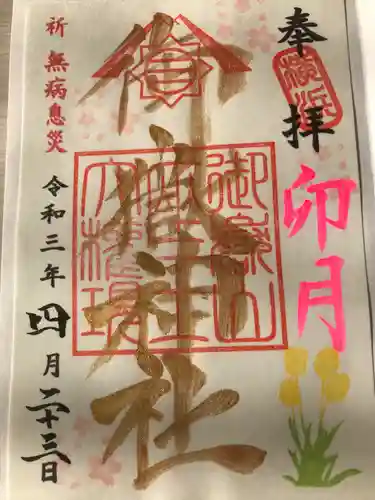 奉拝
横浜
卯月
御嶽神社
祈 無病息災
令和三年四月二十三日